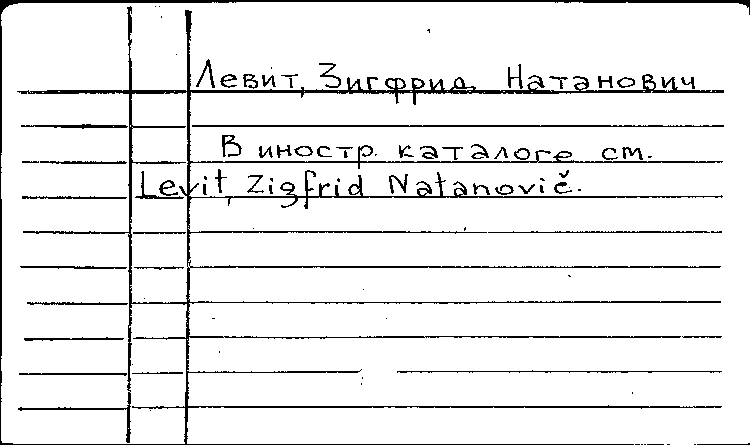 Левит, Зигфрид Натанович
В иностр. каталоге см.
Levit, Zigfrid Natanovič.